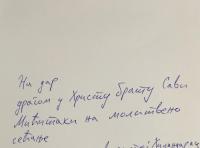 На дар
драгом у Христу брату Сави
на молитвено
сећање